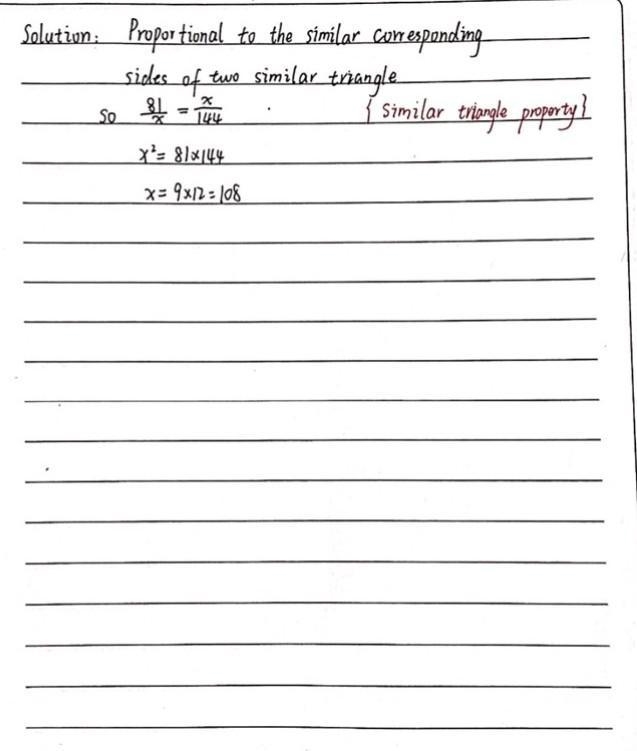 Solution: Proportional to the similar corresponding
sides of two similar triangle
So 81/x = x/144 . { Similar triangle property}
x²= 81×144
x= 9×12=108